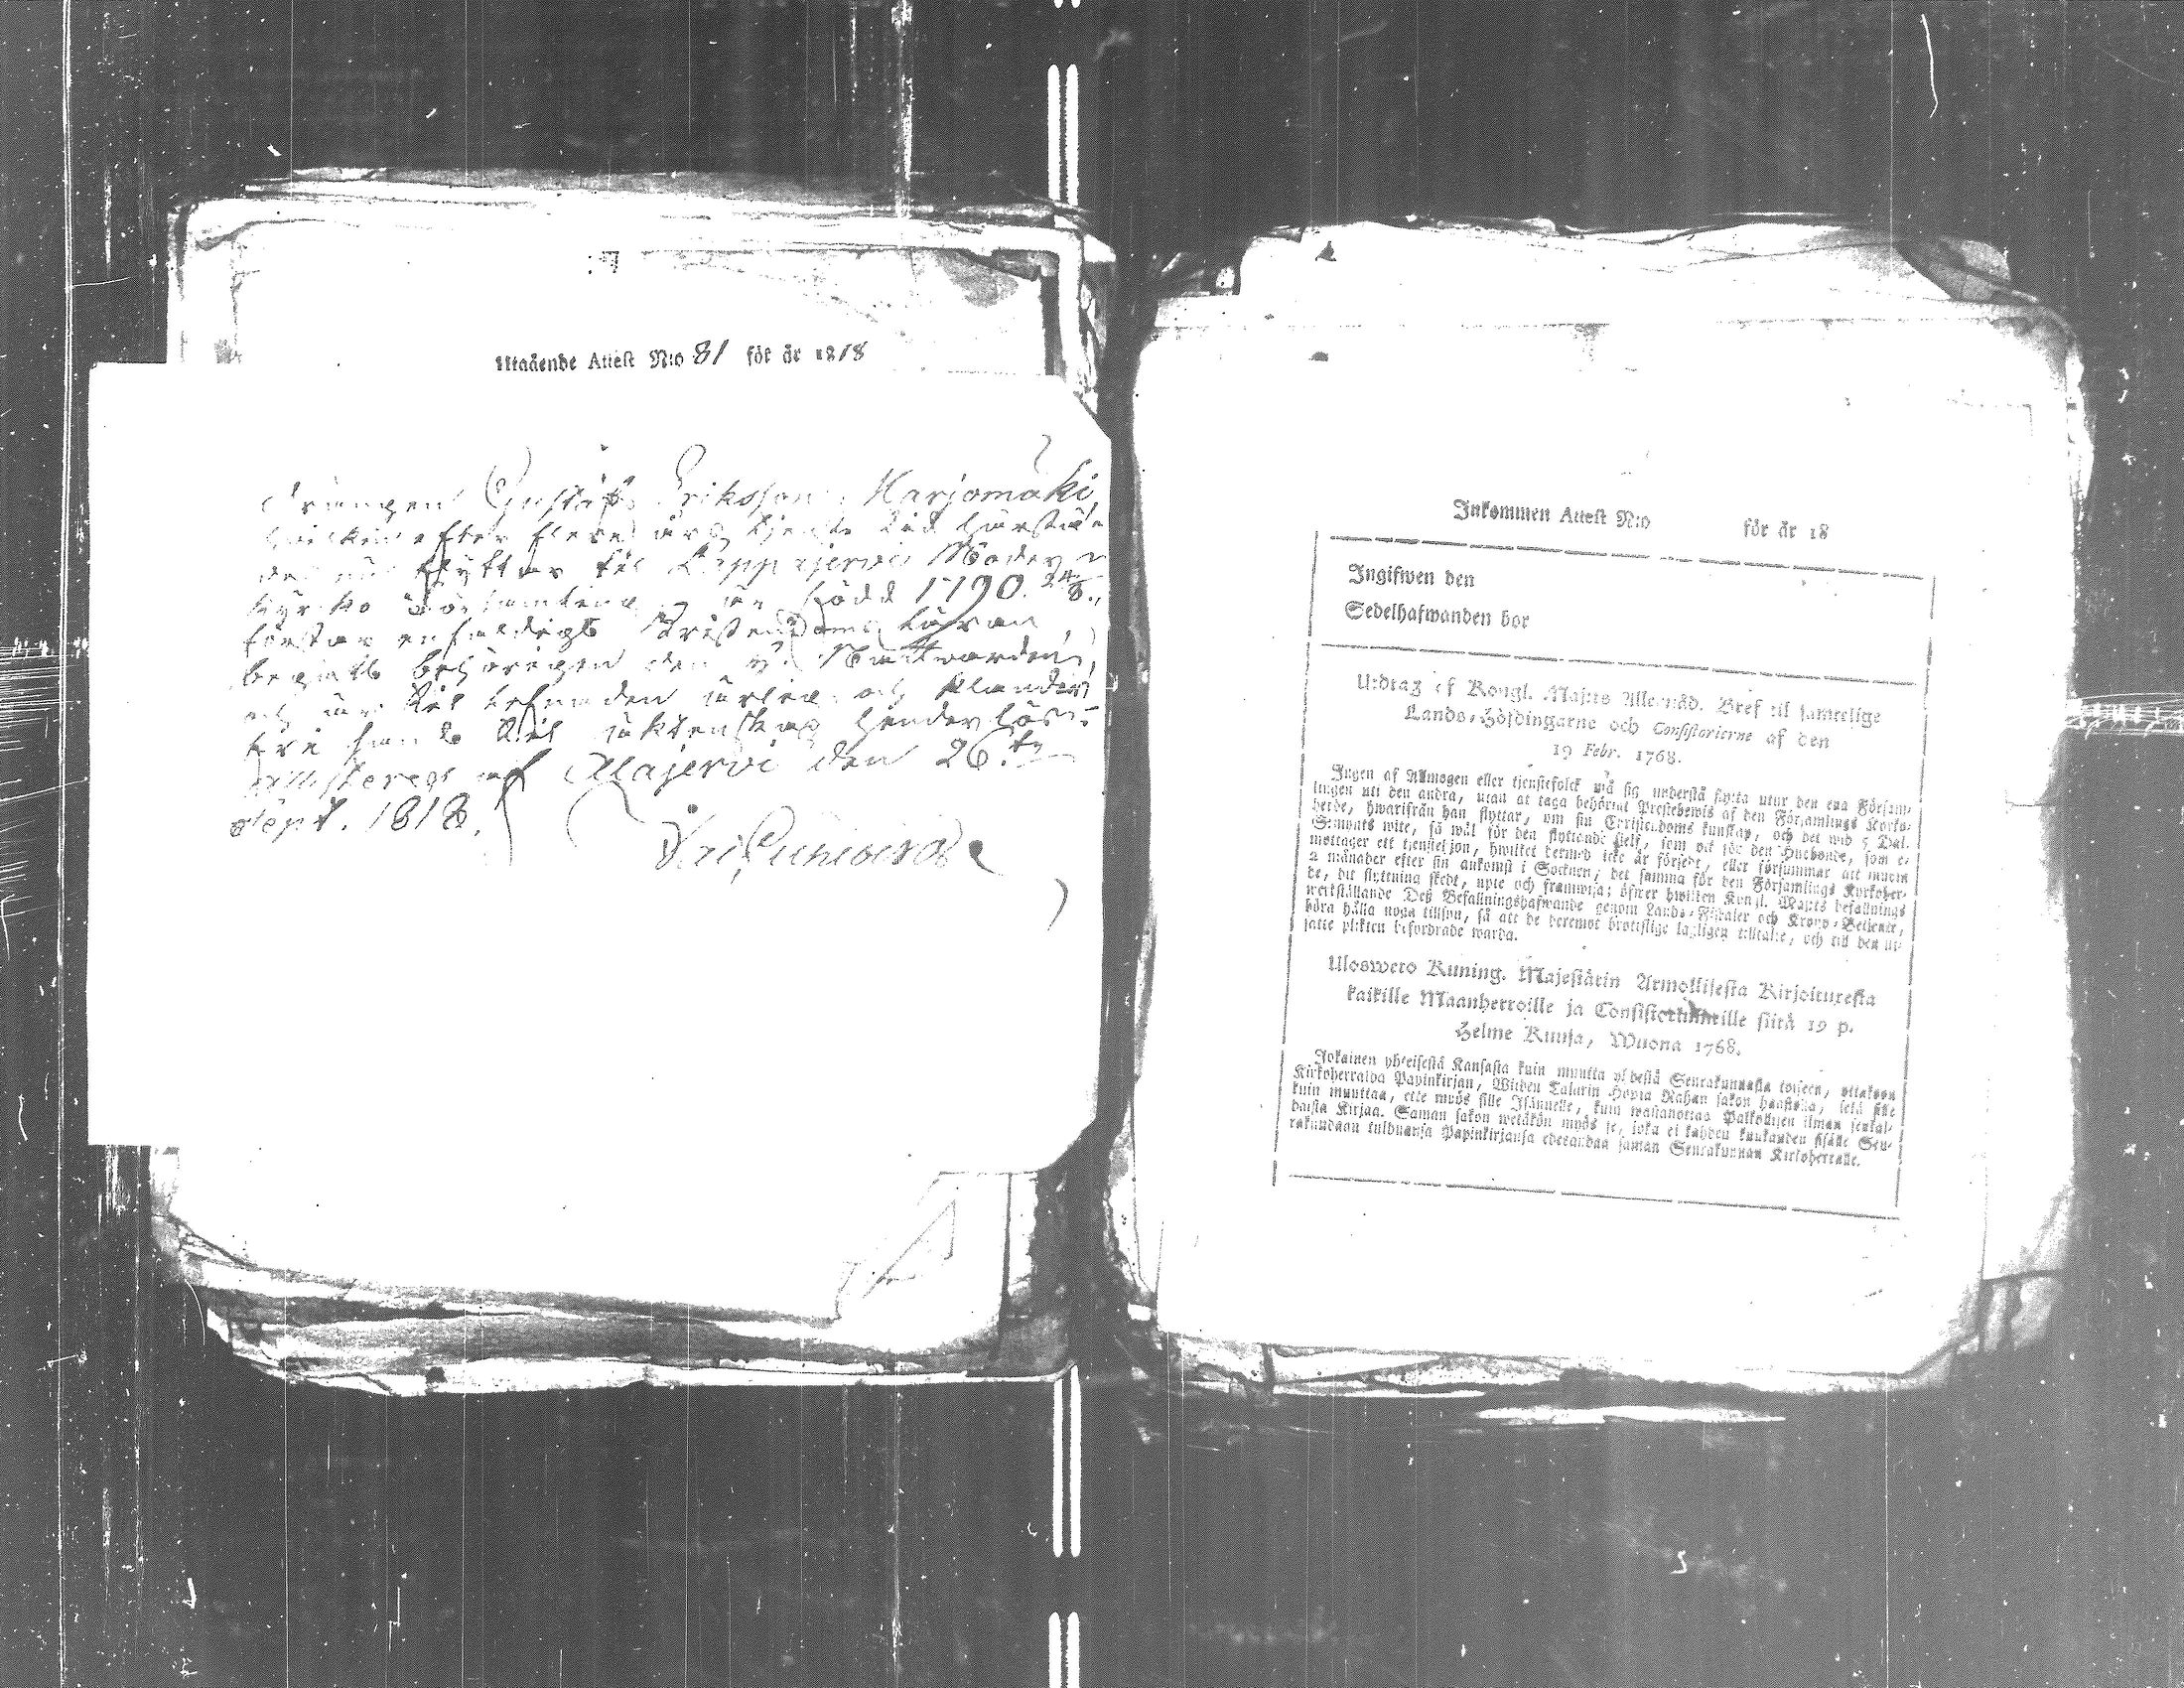 Utgående Attest N:o 81 för år 1818
Drängen Gustaf Eriksson Harjomäki
hvilken efter flere års tid härstä
des nu flyttar til Lappajervi Moder
Kyrko Församling, är född 1790. 24/8.,
förstår enfaldigt Kristendoms läran
begått behörigen den h. Nattvarden,
och är til lefnaden ärlig och
fri samt til äktenskap hinderlös:
attesteras af Alajervi den 26:te
Sept. 1818.
Inkommen Attest N:o för år 18
Ingifwen den
Sedelhafwanden bor
Utdrag af Kongl. Maj:ts Allernåd. Bref til samtelige
Lands-Höfdingarne och Consistorierne af den
19 Febr. 1768.
Ingen af Allmogen eller tienstefolck må sig understå flytta utur den ena Försam-
lingen uti den andra, utan at taga behörigt Prestebewis af den Församlings Kyrko-
herde, hwarifrån han flyttar, om sin Christendoms kunskap, och det wid 5 Dal.
S:mynts wite, så wäl för den flyttande sielf, som ock för den Husbonde, som e-
mottager ett tienstehjon, hwilket dermed icke är försedt, eller försummar att innom
2 månader efter sin ankomst i Socknen, det samma för den Församlings Kyrkoher-
de, dit flyttning skedt, upte och framwisa; öfwer hwilken Kongl. Maj:ts befallnings
werkställande Dess Befallningshafwande genom Lands-Fiskaler och Krono-Betjente,
böra hålla noga tillsyn, så att de deremot brottslige lagligen tilltalte, och till den ut-
satte plikten befordrade warda.
Uloswero Kuning. Majestätin Armollisesta Kirjoituxesta
kaikille Maanherroille ja Consistoriumeille siitä 19 p.
Helme Kuusa, Wuona 1768.
Jokainen yhteisestä Kansasta kuin muutta yhdestä Seurakunnasta toiseen, ottakoon
Kirkoherralda Papinkirjan, Wiiden Talarin Hopia Rahan sakon haastolla, sekä sille
kuin muuttaa, ette myös sille Isännelle, kuin wastanottaa Palkollisen ilman senkal-
daista Kirjaa. Saman sakon wetäkön myös se, joka ei kahden kuukauden sisälle Seu-
rakundaan tulduansa Papinkirjansa edesandaa saman Seurakunnan Kirkoherralle.